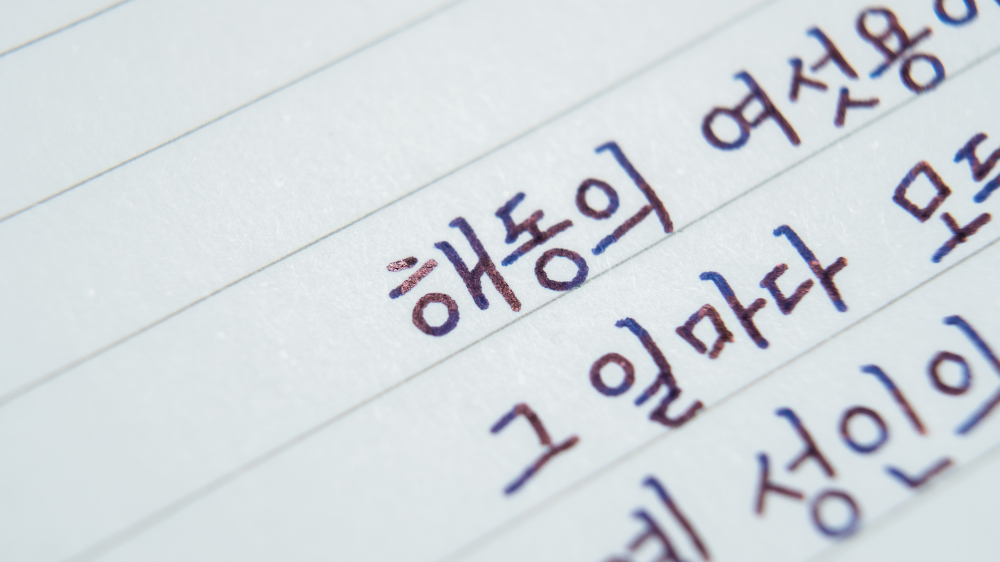 해동의 여섯용이
그 일마다 모두
성인의